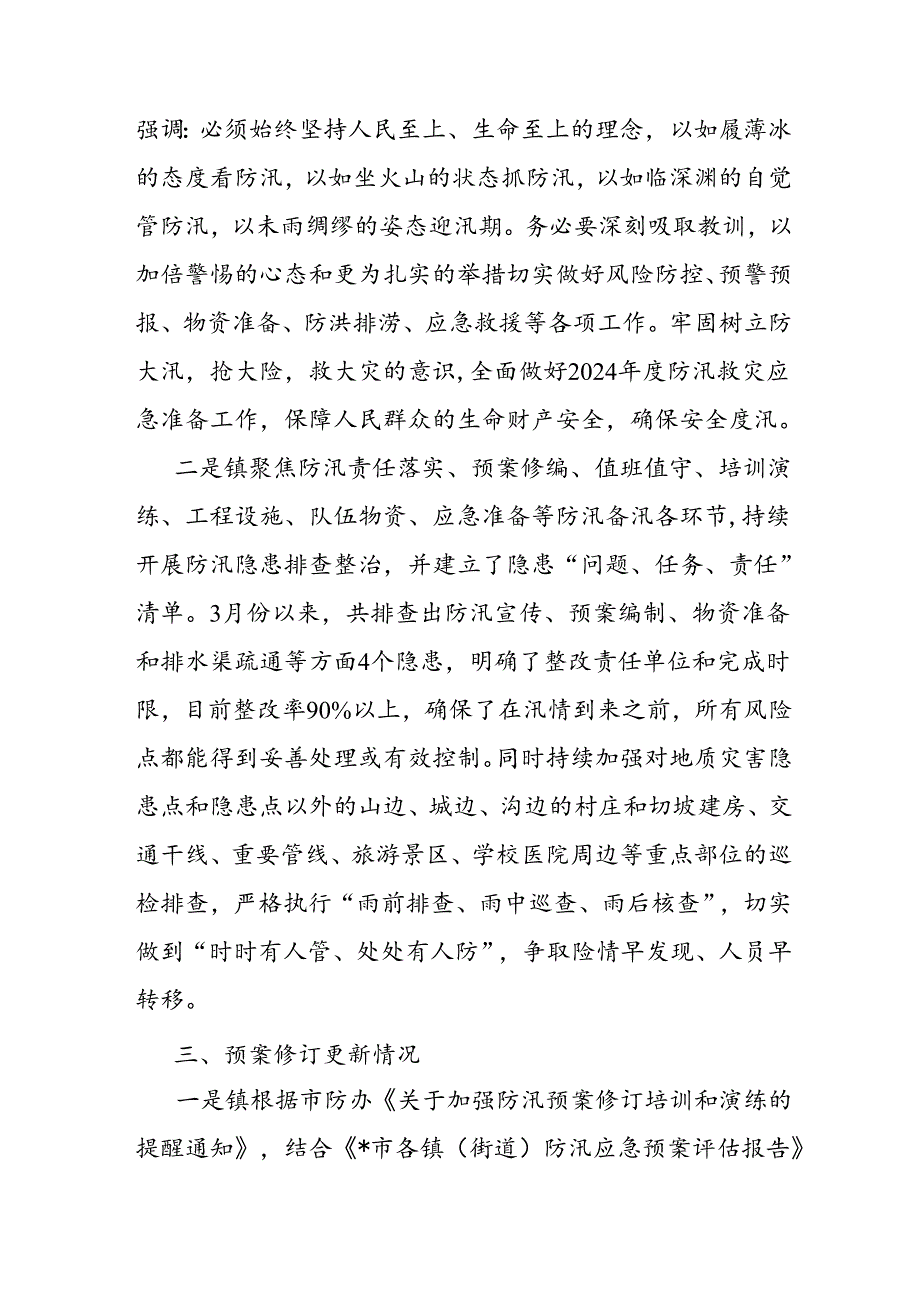 强调：必须始终坚持人民至上、生命至上的理念，以如履薄冰
的态度看防汛，以如坐火山的状态抓防汛，以如临深渊的自觉
管防汛，以未雨绸缪的姿态迎汛期。务必要深刻吸取教训，以
加倍警惕的心态和更为扎实的举措切实做好风险防控、预警预
报、物资准备、防洪排涝、应急救援等各项工作。牢固树立防
大汛，抢大险，救大灾的意识，全面做好2024年度防汛救灾应
急准备工作，保障人民群众的生命财产安全，确保安全度汛。
二是镇聚焦防汛责任落实、预案修编、值班值守、培训演
练、工程设施、队伍物资、应急准备等防汛备汛各环节，持续
开展防汛隐患排查整治，并建立了隐患“问题、任务、责任”
清单。3月份以来，共排查出防汛宣传、预案编制、物资准备
和排水渠疏通等方面4个隐患，明确了整改责任单位和完成时
限，目前整改率90%以上，确保了在汛情到来之前，所有风险
点都能得到妥善处理或有效控制。同时持续加强对地质灾害隐
患点和隐患点以外的山边、城边、沟边的村庄和切坡建房、交
通干线、重要管线、旅游景区、学校医院周边等重点部位的巡
检排查，严格执行“雨前排查、雨中巡查、雨后核查”，切实
做到“时时有人管、处处有人防”，争取险情早发现、人员早
转移。
三、预案修订更新情况
一是镇根据市防办《关于加强防汛预案修订培训和演练的
提醒通知》，结合《*市各镇（街道）防汛应急预案评估报告》